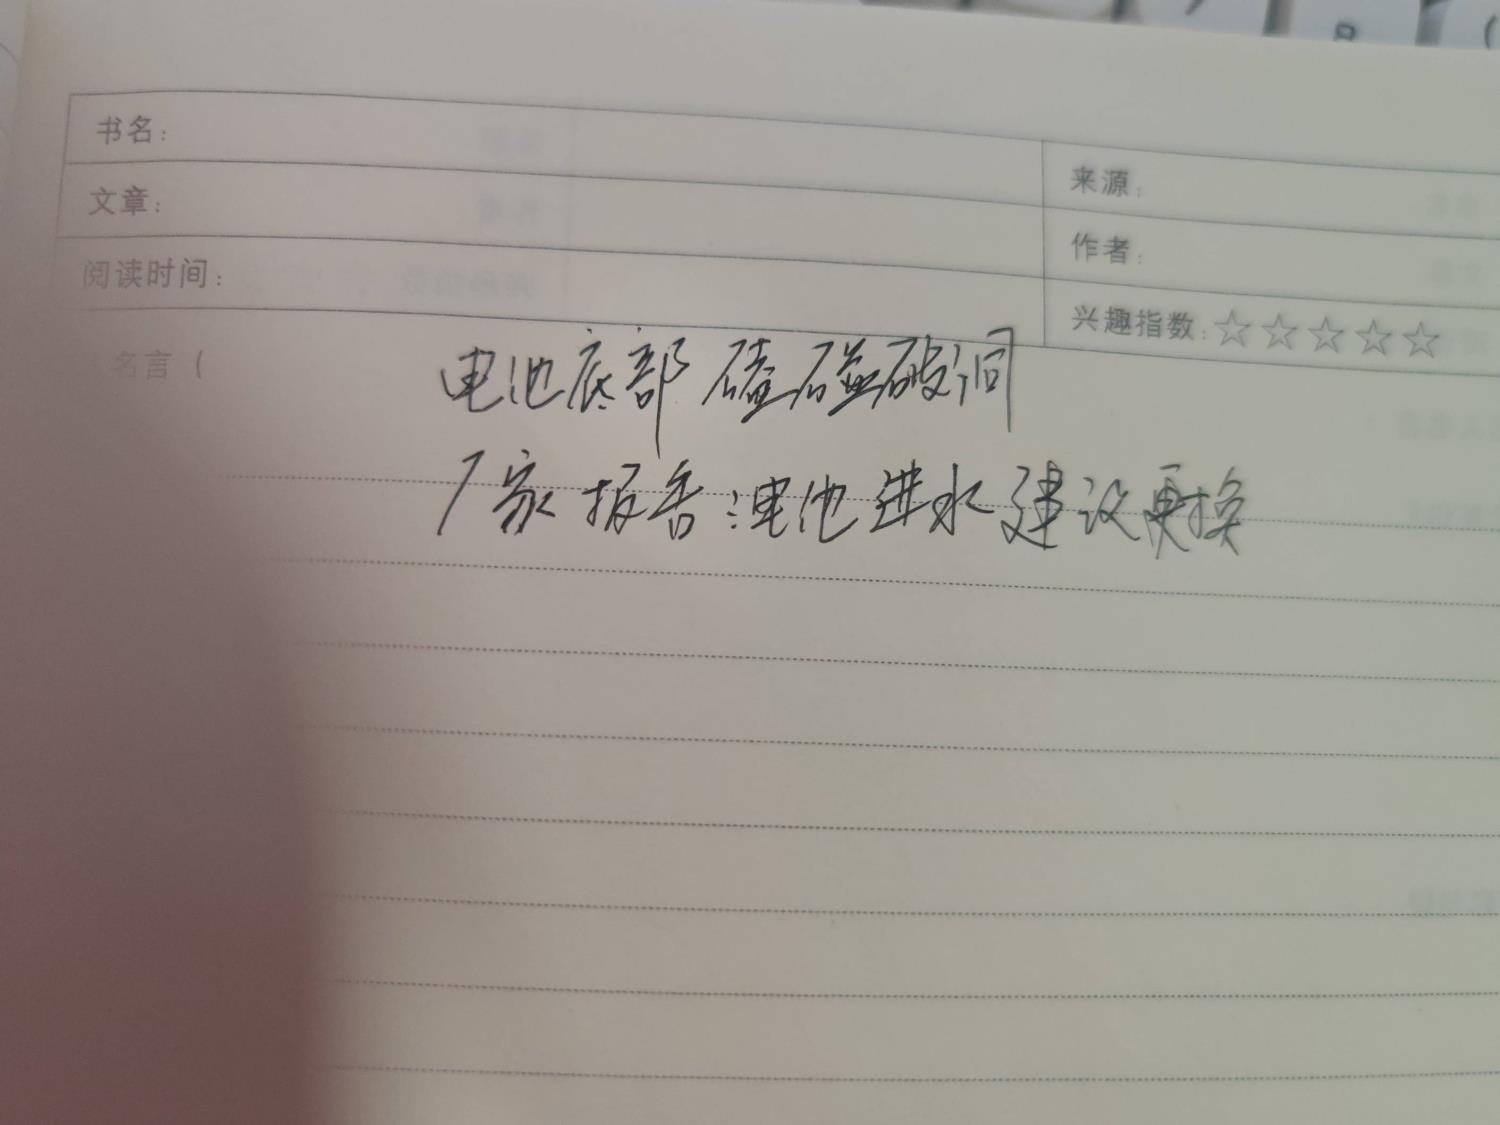 书名：
来源：
文章：
作者：
阅读时间：
兴趣指数：☆☆☆☆☆
名言（
电池底部磕碰破洞
厂家报告：电池进水建议更换